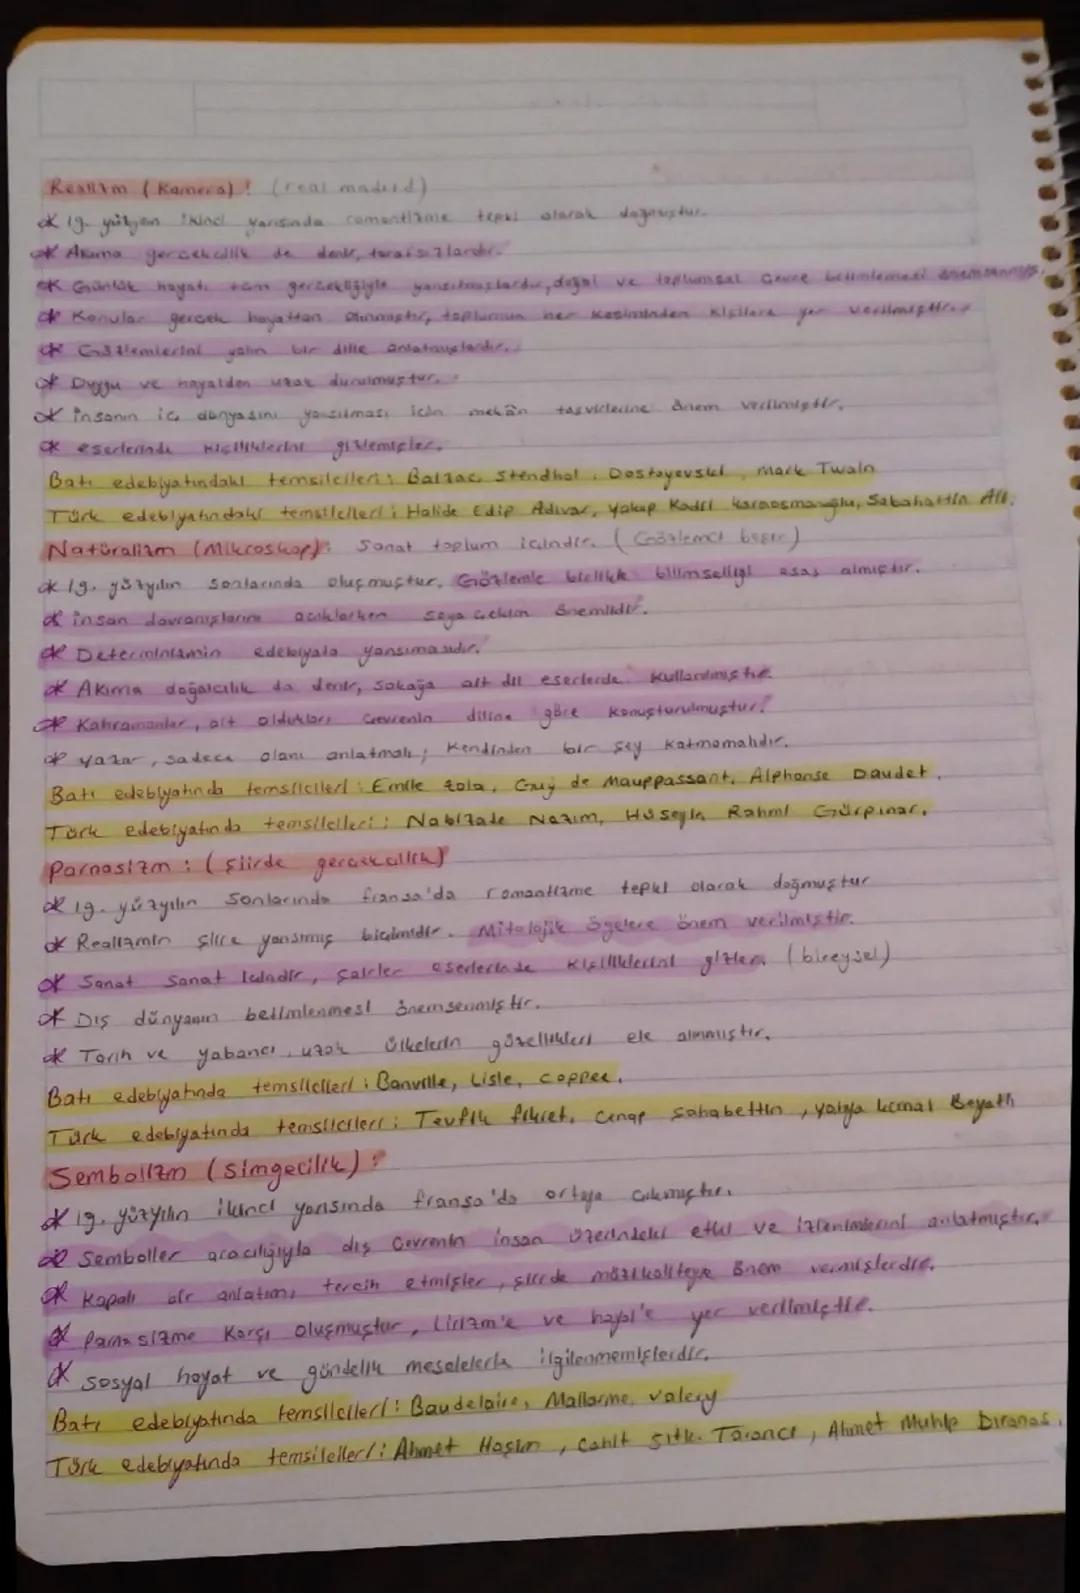 Realizm (Kamera): (real madrid)
* 19. yüzyılın ikinci yarısında romantizme tepki olarak doğmuştur.
* Akıma gerçekcilik de denir, tarafsızlardır.
* Günlük hayatı tüm gerçekliğiyle yansıtmışlardır, doğal ve toplumsal çevre betimlemesi önemsenmiş.
* Konular gerçek hayattan alınmıştır, toplumun her kesiminden kişilere yer verilmiştir.
* Gözlemlerini yalın bir dille anlatmışlardır.
* Duygu ve hayalden uzak durulmuştur.
* insanın iç dünyasını yansıtması için mekân tasvirlerine önem verilmiştir.
* eserlerinde kişiliklerini gizlemişler.
Batı edebiyatındaki temsilcileri: Balzac, Stendhal, Dostoyevski, Mark Twain
Türk edebiyatındaki temsilcileri: Halide Edip Adıvar, Yakup Kadri Karaosmanoğlu, Sabahattin Ali.
Natüralizm (Mikroskop): Sanat toplum içindir. (Gözlemci)
* 19. yüzyılın sonlarında oluşmuştur. Gözlemle birlikte bilimselliği esas almıştır.
* insan davranışlarını açıklarken soya çekim önemlidir.
* Determinizmin edebiyata yansımasıdır.
* Akıma doğalcılık da denir, sokağa ait dil eserlerde kullanılmıştır.
* Kahramanlar, ait oldukları çevrenin diline göre konuşturulmuştur.
* yazar, sadece olanı anlatmalı; kendinden bir şey katmamalıdır.
Batı edebiyatında temsilcileri: Emile zola, Guy de Mauppassant, Alphonse Daudet.
Türk edebiyatında temsilcileri: Nabizade Nazım, Hüseyin Rahmi Gürpınar.
Parnasizm: (şiirde gerçekcilik)
* 19. yüzyılın sonlarında fransa'da romantizme tepki olarak doğmuştur
* Realizmin şiire yansımış biçimidir. Mitolojik ögelere önem verilmiştir.
* Sanat sanat içindir, şairler eserlerinde kişiliklerini gizler. (bireysel)
* Dış dünyanın betimlenmesi önemsenmiştir.
* Tarih ve yabancı, uzak ülkelerin güzellikleri ele alınmıştır.
Batı edebiyatında temsilcileri: Banville, Lisle, coppee.
Türk edebiyatında temsilcileri: Tevfik fikret, cenap şahabettin, yahya kemal Beyatlı
Sembolizm (simgecilik):
* 19. yüzyılın ikinci yarısında fransa'da ortaya çıkmıştır.
* Semboller aracılığıyla dış çevrenin insan üzerindeki etki ve izlenimlerini anlatmıştır.
* kapalı bir anlatımı tercih etmişler, şiirde müzikaliteye önem vermişlerdir.
* Parnasizme karşı oluşmuştur, lirizm'e ve hayal'e yer verilmiştir.
* sosyal hayat ve gündelik meselelerle ilgilenmemişlerdir.
Batı edebiyatında temsilcileri: Baudelaire, Mallarme, valery
Türk edebiyatında temsilcileri: Ahmet Haşim, cahit sıtkı Tarancı, Ahmet Muhip Dıranas.